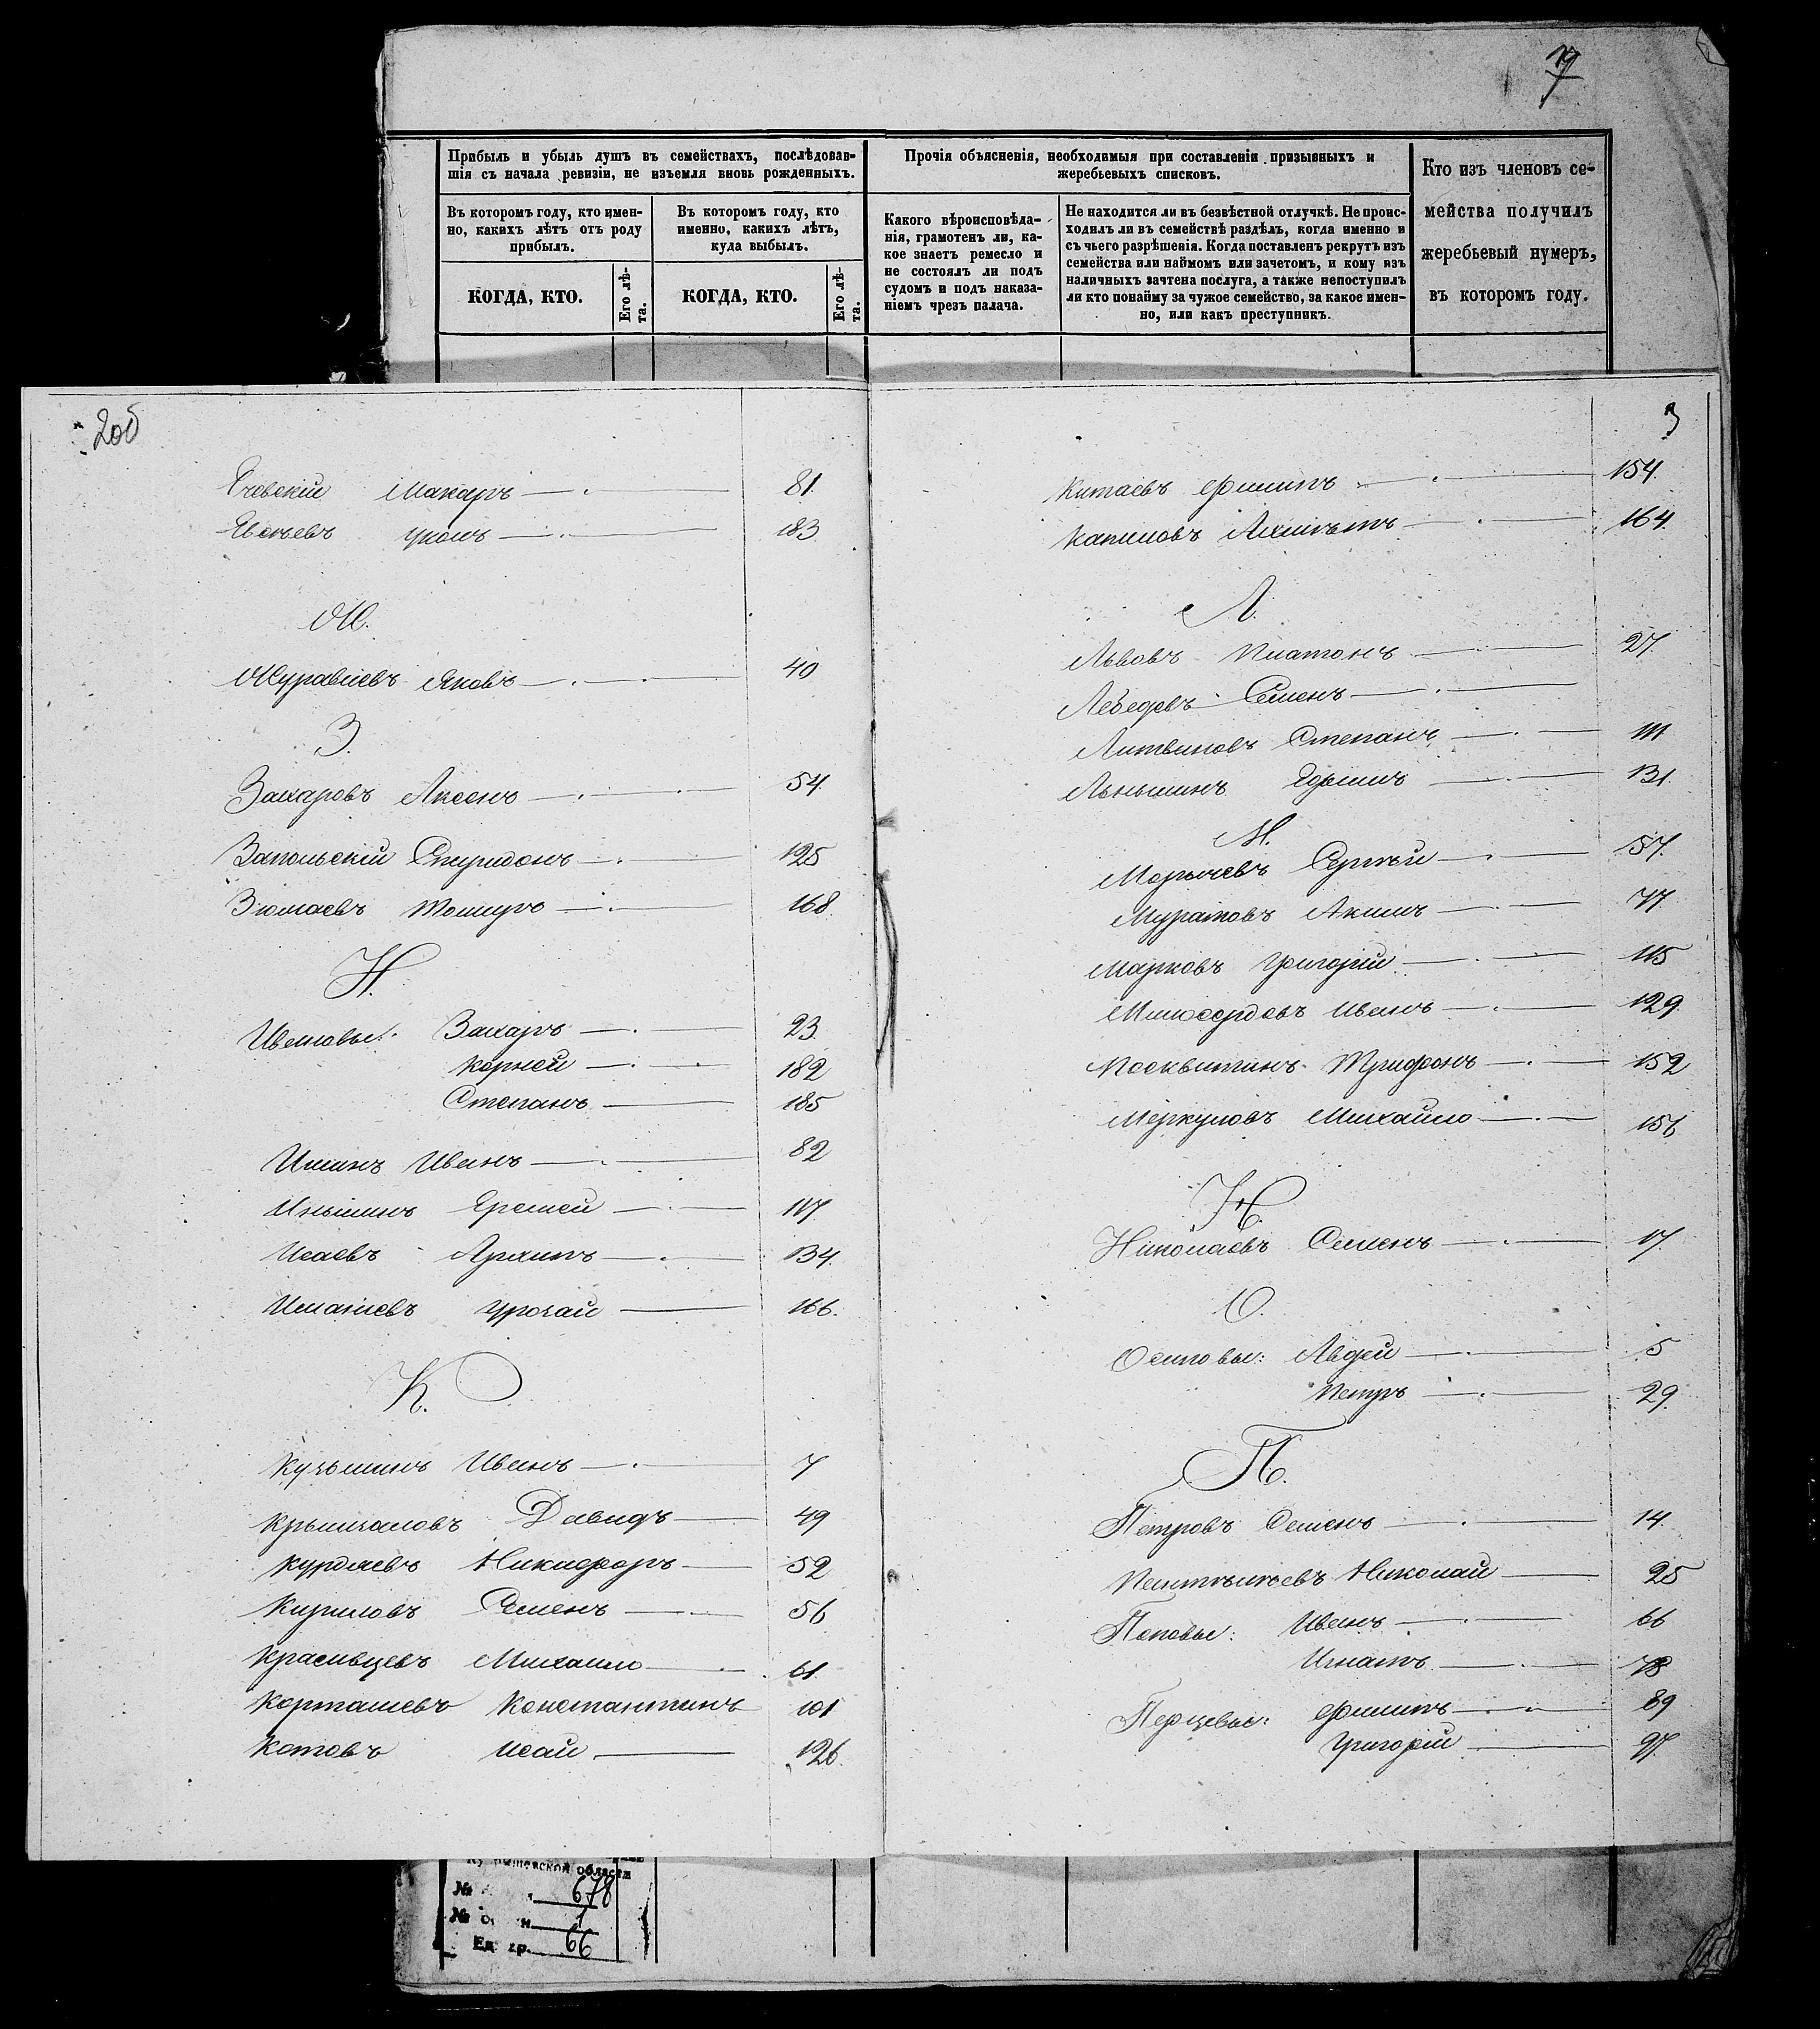 7
Прибыль и убыль душъ въ семействахъ, послѣдовав-
шія съ начала ревизіи, не изъемля вновь рожденныхъ.
Въ которомъ году, кто имен-
но, какихъ лѣтъ отъ роду
прибылъ.
Въ которомъ году, кто
именно, какихъ лѣтъ,
куда выбылъ.
КОГДА, КТО.
Его лѣ-
та.
КОГДА, КТО.
Его лѣ-
та.
Прочія объясненія, необходимыя при составленіи призывныхъ и
жеребьевыхъ списковъ.
Какого вѣроисповѣда-
нія, грамотенъ ли, ка-
кое знаетъ ремесло и
не состоялъ ли подъ
судомъ и подъ наказа-
ніемъ чрезъ палача.
Не находится ли въ безвѣстной отлучкѣ. Не проис-
ходилъ ли въ семействѣ раздѣлъ, когда именно и
съ чьего разрѣшенія. Когда поставленъ рекрутъ изъ
семейства или наймомъ или зачетомъ, и кому изъ
наличныхъ зачтена послуга, а также непоступилъ
ли кто понайму за чужое семейство, за какое имен-
но, или какъ преступникъ.
Кто изъ членовъ се-
мейства получилъ
жеребьевый нумеръ,
въ которомъ году.
2об
Макаръ 81.
183
Ж.
Журавлевъ Яковъ 40
З.
Захаровъ Аксенъ 54.
Запольскій Спиридонъ 125
Зюмаевъ 168.
И.
Ивановы: Захаръ 23.
Корней 182
Степанъ 185
Илинъ Иванъ 82
Инышинъ Еремей 117.
Исаевъ Архипъ 134.
166.
К.
Кузьминъ Иванъ 7
Давидъ 49
Курдяевъ Никифоръ 52
Кириловъ Семенъ 56
Красивцевъ Михайло 61.
Корташевъ Константинъ 101
Котовъ Исай 126.
3
Китаевъ Филипъ 154.
164.
Л.
Львовъ Платонъ 27.
Лебедевъ Семенъ
Литвиновъ Степанъ 111
Льнышинъ Ефимъ 131.
М.
Сергѣй 57.
Муратовъ Акимъ 77.
Марковъ Григорій 115
Милосердовъ Иванъ 129.
Москвитинъ Трифонъ 152
Меркуловъ Михайло 156
Н.
Николаевъ Семенъ 17.
О.
Осиповы: Авдей 5
Петръ 29.
П.
Петровъ Семенъ 14.
Пантѣлѣевъ Николай 25
Поповы: Иванъ 66
Игнатъ 78
Перцевы: Филипъ 89
Григорій 97.
области
№ 678
№ 1
Ед. хр. 66